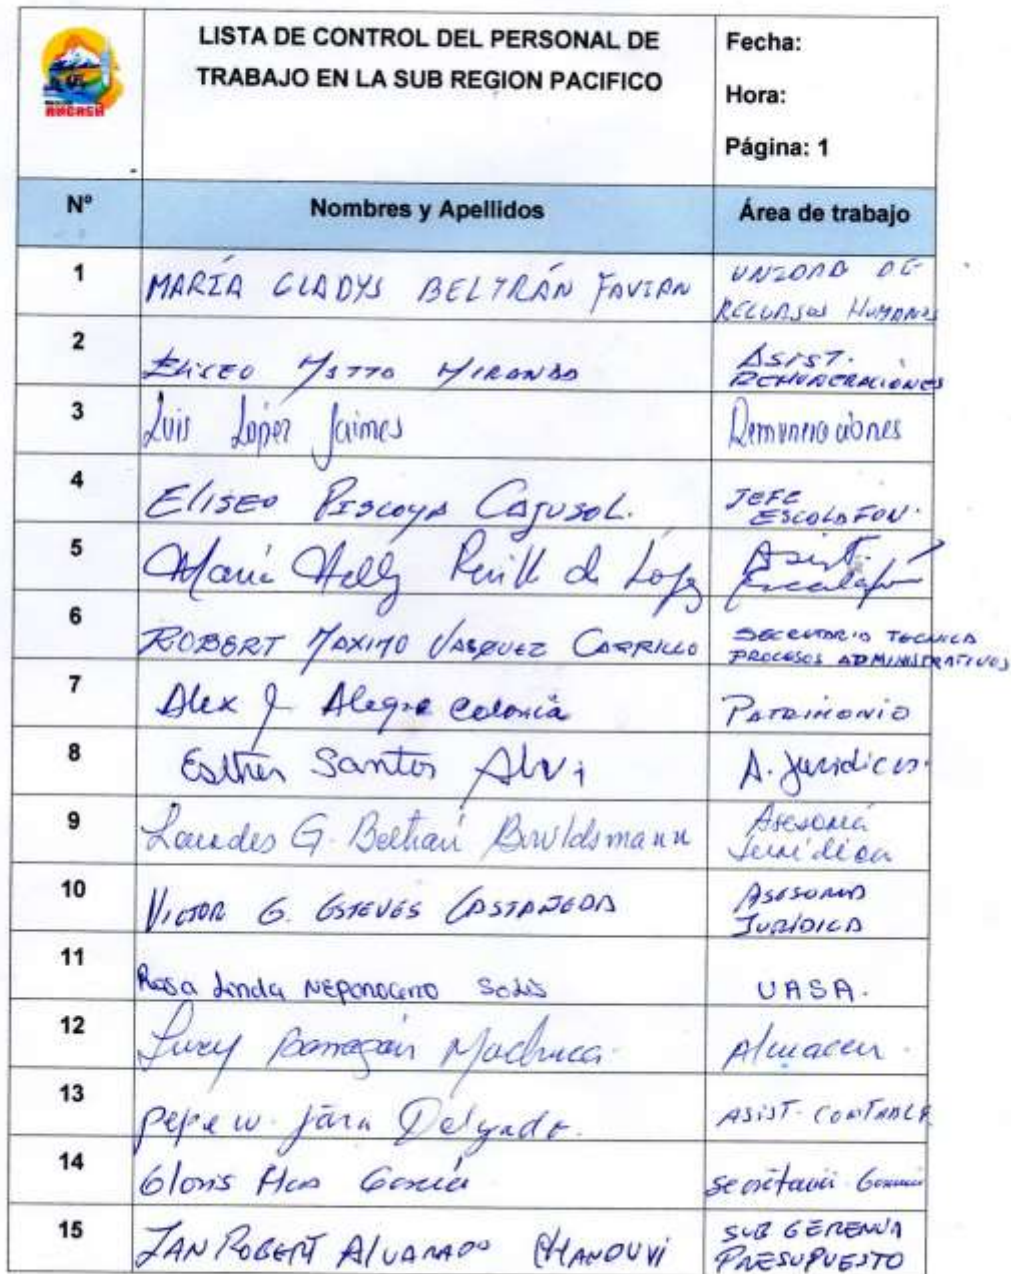 LISTA DE CONTROL DEL PERSONAL DE
TRABAJO EN LA SUB REGION PACIFICO
Fecha:
Hora:
Página: 1
ANCASH
Nº Nombres y Apellidos Área de trabajo
1 MARÍA GLADYS BELTRÁN FAVIAN UNIDAD DE
RECURSOS HUMANOS
2 ELISEO MIRANDA ASIST.
REMUNERACIONES
3 Luis López Jaimes Remuneraciones
4 ELISEO PISCOYA CAJUSOL. JEFE
ESCALAFON.
5 María Nelly de López Asist.
Escalafón
6 ROBERT MAXIMO VASQUEZ CARRILLO SECRETARIO TECNICO
PROCESOS ADMINISTRATIVOS
7 Alex J. Alegre Colonia PATRIMONIO
8 Esther Santos A. Juridica
9 Lourdes G. Beltrán Asesoría
Jurídica
10 VICTOR G. ESTEVES CASTAÑEDA ASESORIA
JURIDICA
11 Rosa Linda NEPONOCENO SOLIS UASA.
12 Barragán Machuca. Almacen.
13 pepe w. jara Delgado. ASIST. CONTABLE
14 García secretaria
15 JAN ROBERT ALVARADO CHANDUVI SUB GERENCIA
PRESUPUESTO